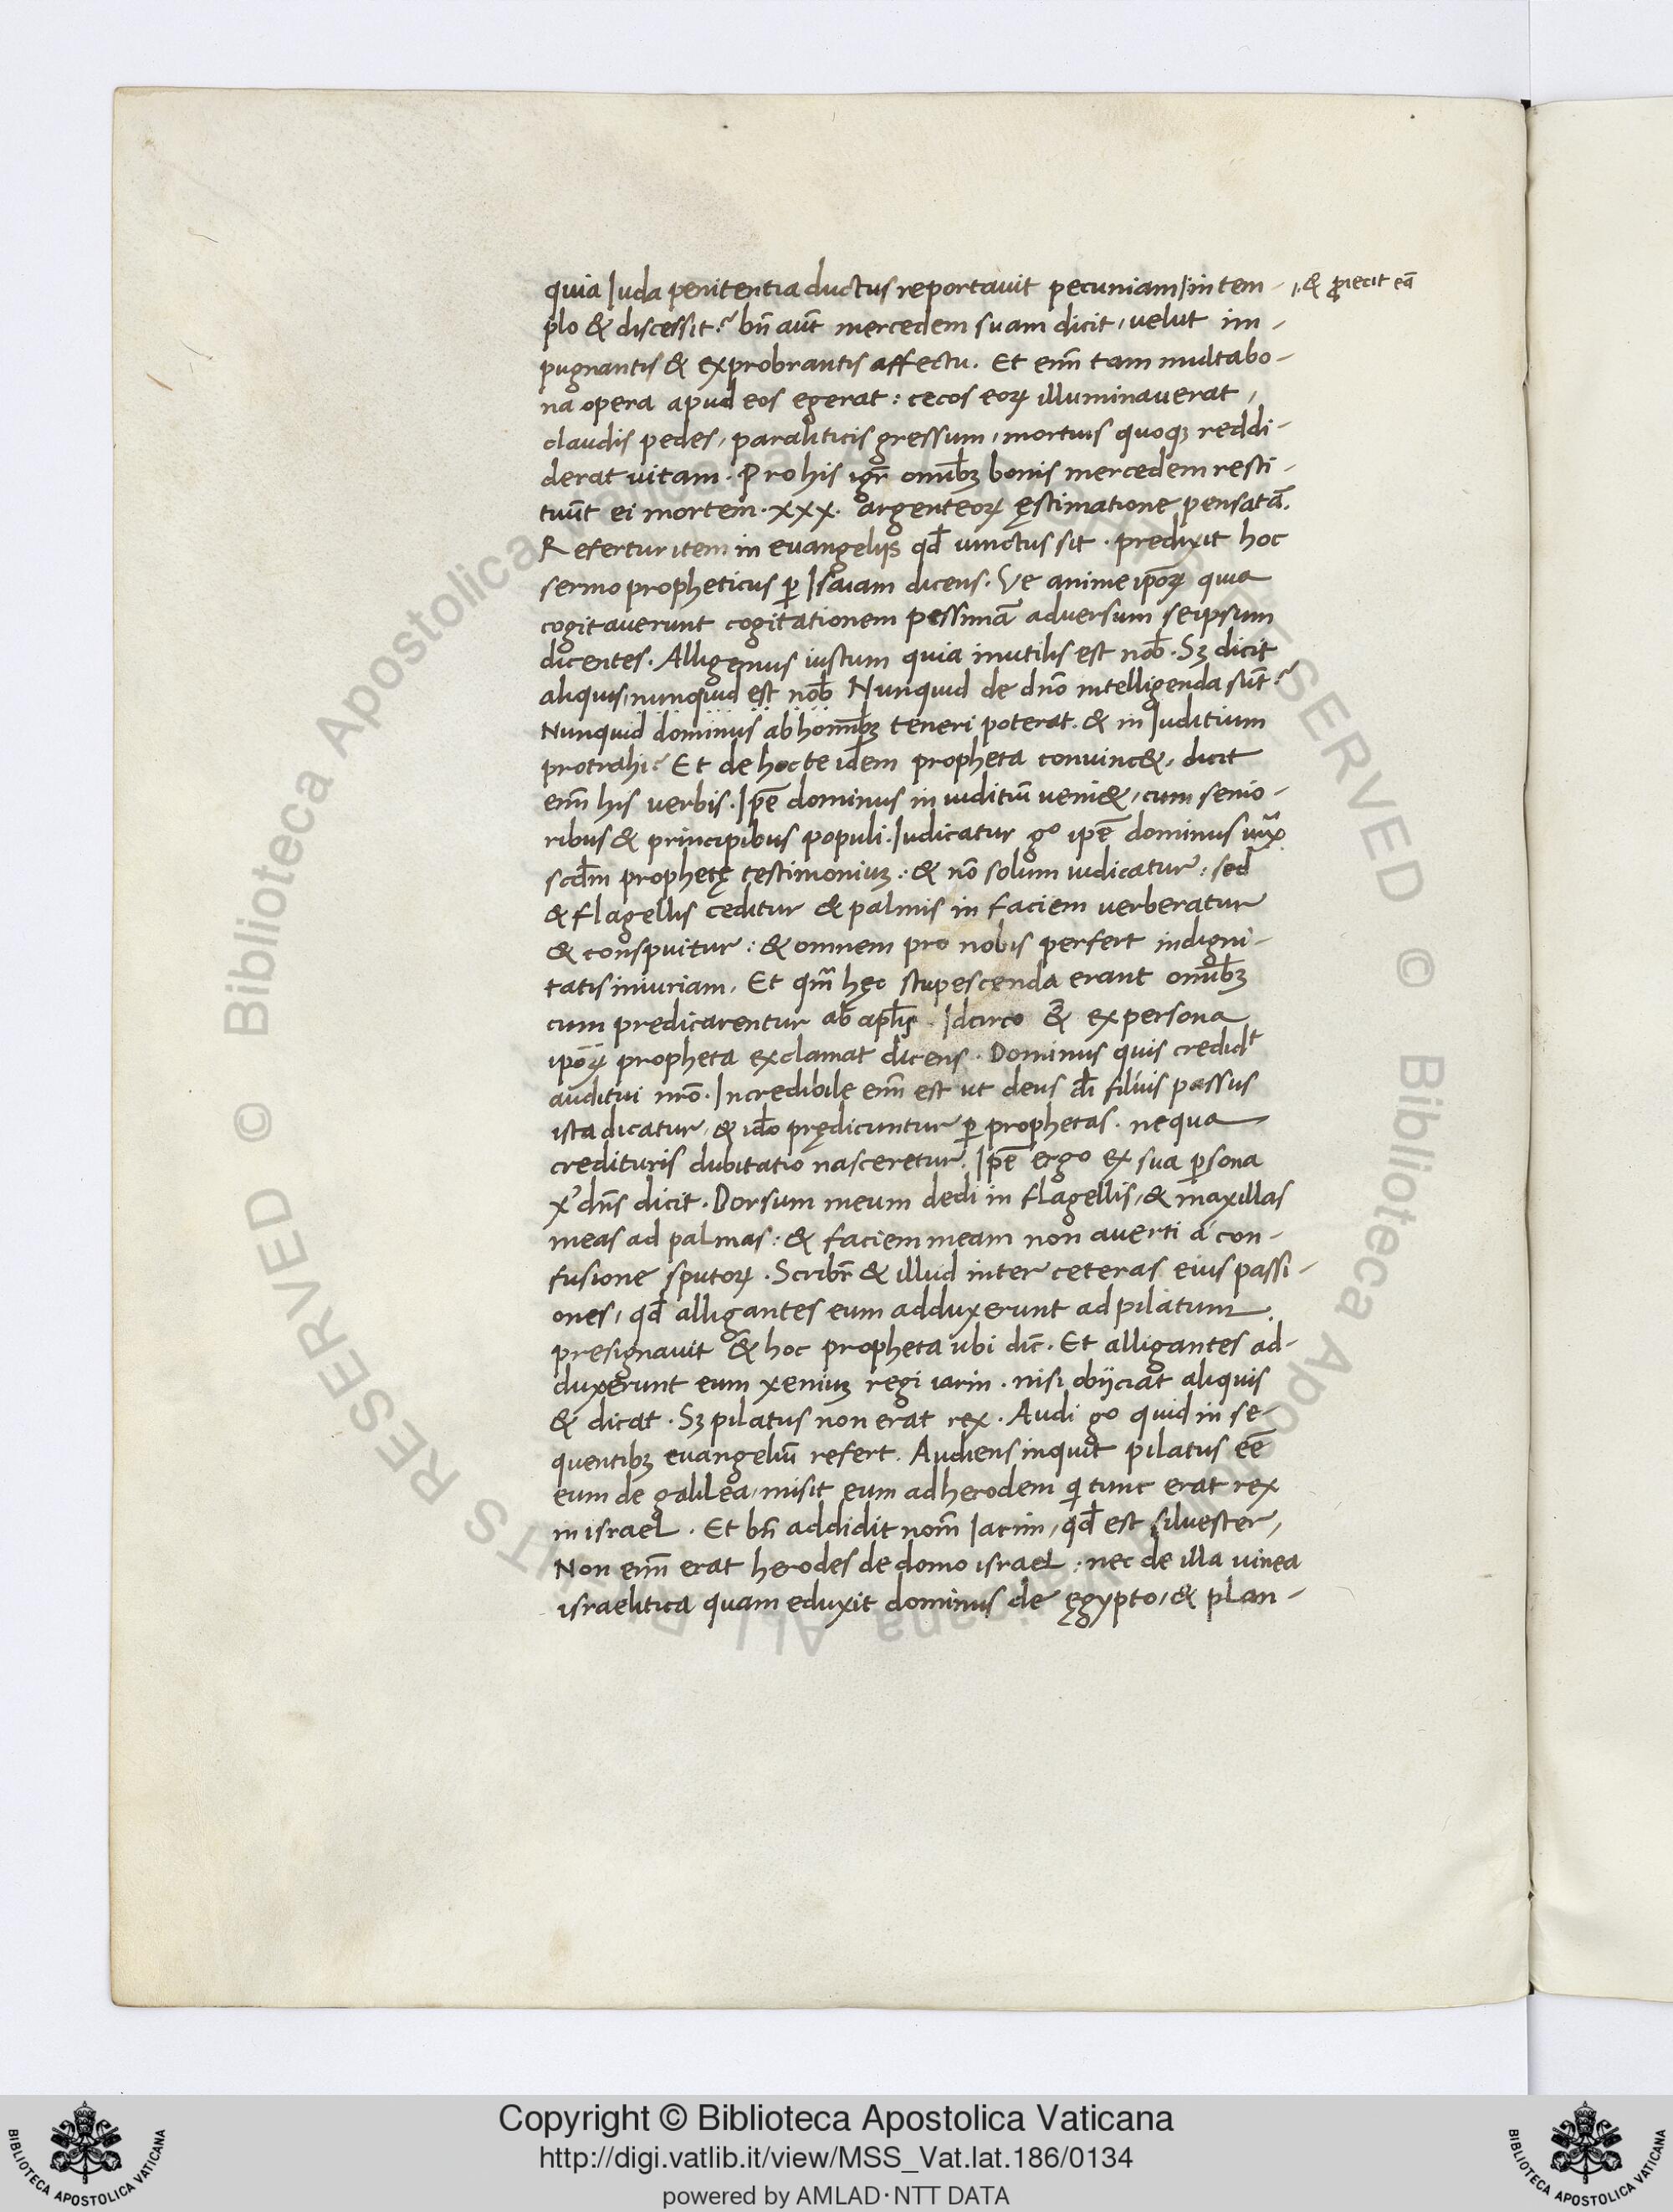 quia Iuda penitentia ductus reportauit pecuniam | in tem- ı, & ꝓiecit eā
plo & discessit? bn̄ aūt mercedem suam dicit, uelut im-
pugnantis & exprobrantis affectu. Et enī tam multa bo-
na opera apud eos egerat: cecos eoꝝ illuminauerat,
claudis pedes, paraliticis gressum, mortuis quoqꝫ reddi-
derat uitam. Pro his igr̄ omībꝫ bonis mercedem resti-
tuūt ei mortem .xxx. argenteoꝝ ęstimatione pensatā.
Refertur item in euangeliis qđ uinctus sit. predixit hoc
sermo propheticus ꝑ Isaiam dicens. Ve anime ipōꝝ quia
cogitauerunt cogitationem pessimā aduersum seipsum
dicentes. Alligemus iustum quia inutilis est nob̄. Sꝫ dicit
aliquis, nunquid est nob̄ Nunquid de dn̄o intelligenda sūt?
Nunquid dominus ab homībꝫ teneri poterat. & in Iuditium
protrahi? Et de hoc te idem propheta conuinc&, dicit
enī his uerbis. Ip̄e dominus in iuditiū ueni&, cum senio-
ribus & principibus populi. Iudicatur gº ip̄e dominus iux̄
scđm prophetę testimoniuꝫ: & nō solum iudicatur: sed
& flagellis ceditur & palmis in faciem uerberatur
& conspuitur: & omnem pro nobis perfert indigni-
tatis iniuriam. Et qm̄ hęc stupescenda erant omībꝫ
cum predicarentur ab apl̄is. Idcirco & ex persona
ipōꝝ propheta exclamat dicens. Dominus quis credidᵗ
auditui nr̄o. Incredibile enī est ut deus dī filius passus
ista dicatur, & idō prędicuntur ꝑ prophetas. ne qua
credituris dubitatio nasceretur. Ip̄e ergo ex sua ꝑsona
x̓ dn̄s dicit. Dorsum meum dedi in flagellis, & maxillas
meas ad palmas: & faciem meam non auerti a con-
fusione sputoꝝ. Scribr̄ & illud inter ceteras eius passi-
ones, qđ alligantes eum adduxerunt ad pilatum.
presignauit & hoc propheta ubi dic̄. Et alligantes ad-
duxerunt eum xeniuꝫ regi iarin. nisi obiiciat aliquis
& dicat. Sꝫ pilatus non erat rex. Audi gº quid in se-
quentibꝫ euangeliū refert. Audiens inquit pilatus eē
eum de galilea, misit eum ad herodem qi tunc erat rex
in israel. Et bn̄ addidit nom̄ Iarim, qđ est siluester,
Non enī erat herodes de domo israel: nec de illa uinea
israelitica quam eduxit dominus de ęgypto, & plan-
© Biblioteca Apostolica Vaticana ALL RIGHTS RESERVED
© Biblioteca Apostolica Vaticana ALL RIGHTS RESERVED
Copyright © Biblioteca Apostolica Vaticana
http://digi.vatlib.it/view/MSS_Vat.lat.186/0134
powered by AMLAD·NTT DATA
BIBLIOTECA APOSTOLICA VATICANA
BIBLIOTECA APOSTOLICA VATICANA